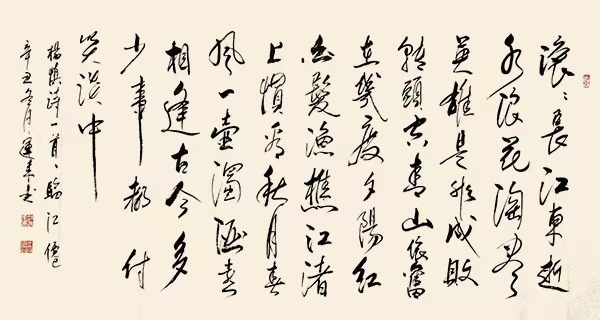 滾〻長江東逝
水浪花淘盡
英雄是非成敗
轉頭空青山依舊
在幾度夕陽紅
白髮漁樵江渚
上慣看秋月春
風一壺濁酒喜
相逢古今多
少事都付
笑談中
楊慎詩一首、臨江僊
辛丑冬月運来书